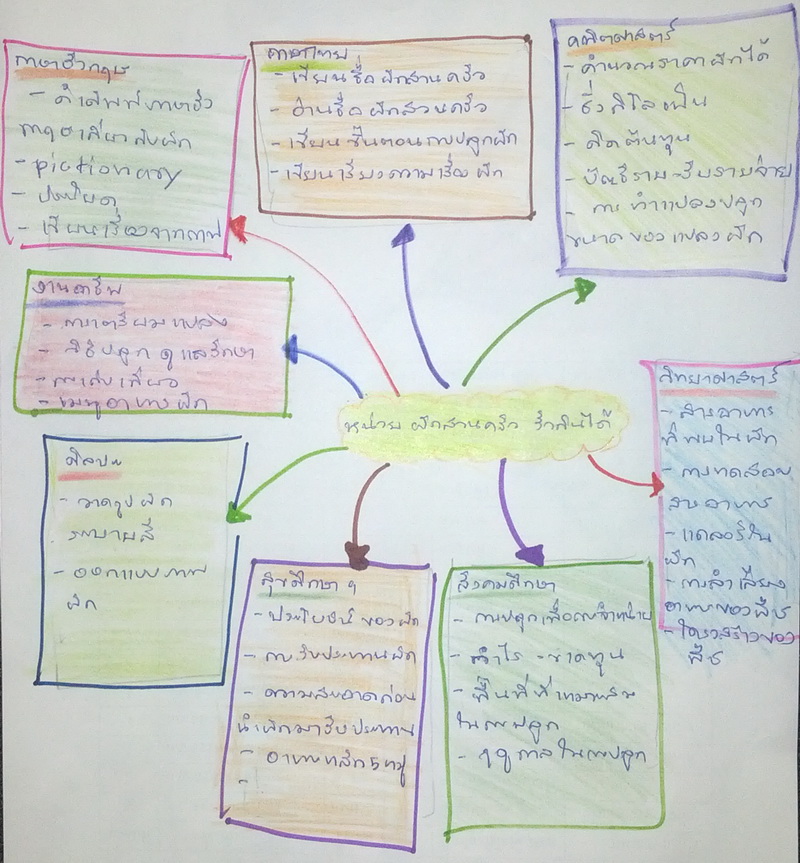 ภาษาอังกฤษ
- คำศัพท์ภาษาอัง
กฤษเกี่ยวกับผัก
- pictionary
- ประโยค
- เขียนเรื่องจากภาพ
ภาษาไทย
- เขียนชื่อผักสวนครัว
- อ่านชื่อผักสวนครัว
- เขียนขั้นตอนการปลูกผัก
- เขียนเรียงความเรื่องผัก
คณิตศาสตร์
- คำนวณราคาผักได้
- ชั่งกิโลเป็น
- คิดต้นทุน
- บัญชีราย-รับรายจ่าย
- การทำแปลงปลูก
ขนาดของแปลงผัก
งานอาชีพ
- การเตรียมแปลง
- วิธีปลูก ดูแลรักษา
- การเก็บเกี่ยว
- เมนูอาหารผัก
หน่วย ผักสวนครัว รั้วกินได้
วิทยาศาสตร์
- สารอาหาร
ที่พบในผัก
- การทดสอบ
สารอาหาร
- แคลอรี่ใน
ผัก
- การลำเลียง
อาหารของพืช
- โครงสร้างของ
พืช
ศิลปะ
- วาดรูปผัก
ระบายสี
- ออกแบบภาพ
ผัก
สุขศึกษาฯ
- ประโยชน์ของผัก
- การรับประทานผัก
- ความสะอาดก่อน
นำผักมารับประทาน
- อาหารหลัก 5 หมู่
-
สังคมศึกษา
- การปลูกเพื่อการจำหน่าย
- กำไร - ขาดทุน
- พื้นที่ที่เหมาะสม
ในการปลูก
- ฤดูกาลในการปลูก